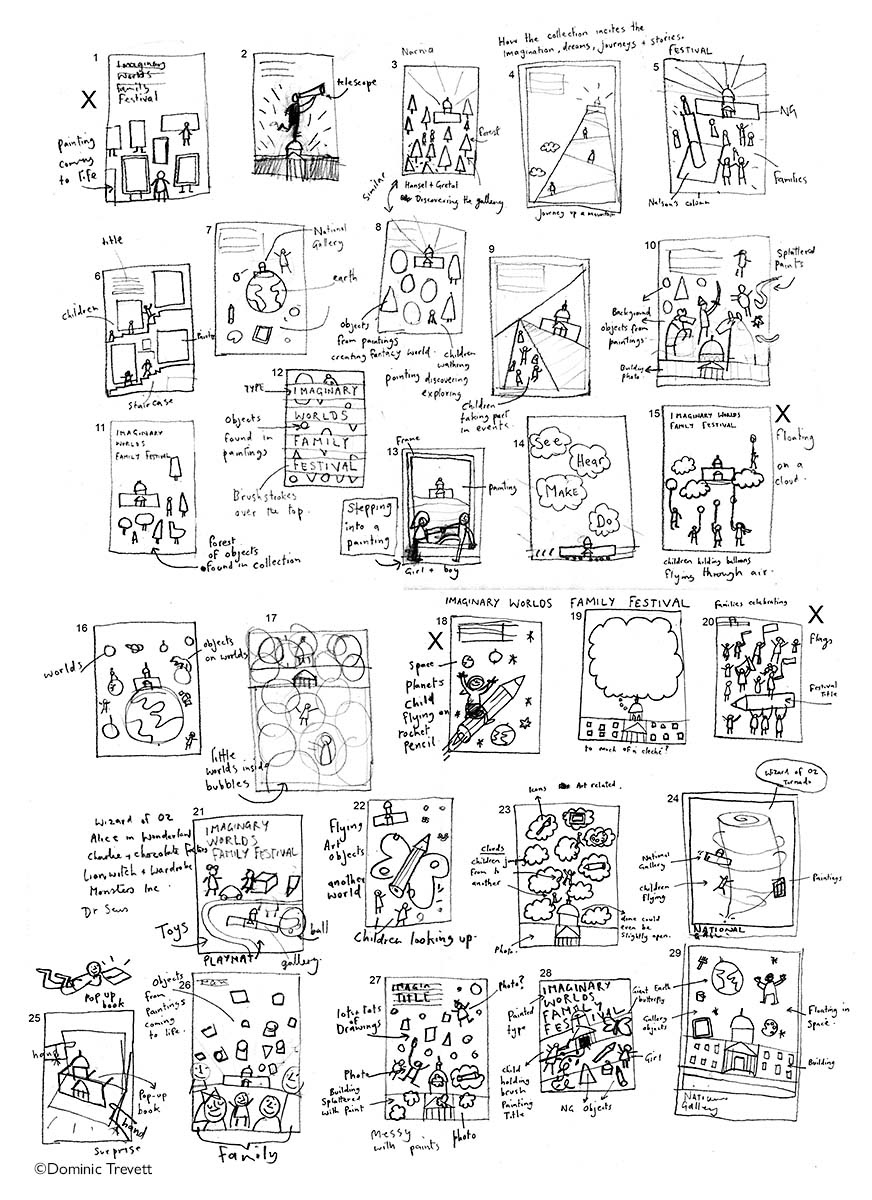 How the collection incites the
imagination, dreams, journeys + stories.
1
Imaginary
Worlds
Family
Festival
X
painting
coming
to life
2
telescope
Narnia
3
forest
Similar
Hansel + Gretal
Discovering the gallery
4
Journey up a mountain
FESTIVAL
5
NG
Families
Nelson's column
title
6
children
Staircase
7
National
Gallery
earth
8
objects
from paintings
creating fantasy world.
children
walking
pointing discovering
exploring
9
Children
taking part
in events.
10
Splattered
Paints
Background
objects from
paintings.
Building
photo
11
IMAGINARY
WORLDS
FAMILY FESTIVAL
forest
of objects
found in collection
12
TYPE
IMAGINARY
WORLDS
FAMILY
FESTIVAL
Objects
found in
paintings
Brushstrokes
over the top.
13
Frame
painting
Stepping
into a
painting
Girl + boy
14
See
Hear
MAKE
Do
15
IMAGINARY WORLDS
FAMILY FESTIVAL
X
Floating
on a
cloud.
children holding balloons
flying through air.
IMAGINARY WORLDS FAMILY FESTIVAL
16
worlds
objects
on worlds
17
little
worlds inside
bubbles
18
X
Space
planets
Child
flying on
rocket
pencil.
19
to much of a cleche?
Families celebrating
20
X
Flags
Festival
Title
Wizard of OZ
Alice in Wonderland
Charlie + chocolate Factory
Lion, witch + Wardrobe
Monsters Inc.
Dr Seus
21
IMAGINGRY
WORLDS
FAMILY FESTIVAL
Toys
PLAYMAT
gallery.
ball
22
Flying
Art
objects
another
world
Children looking up.
23
Icons
Art related.
Clouds
children
from 1 to
another
done could
even be
slightly open.
Photo.
24
Wizard of OZ
Tornado
National
Gallery
Children
Flying
Paintings
NATIONAL
Pop up
book
25
hand
Pop-up
book
hand
Surprise
26
Objects
from
Paintings
coming
to life.
family
27
IMAGIN
TITLE
Photo?
lots + lots
of
Drawings
Photo
Building
Splattered
with Paint
Messy
with paints
photo
28
IMAGINARY
WORLDS
FAMILY
FESTIVAL
Painted
type
Child
holding
brush
Painting
Title
Girl
NG Objects
29
Giant Earth
butterfly
Gallery
objects
Floating in
Space.
Building
National
Gallery
©Dominic Trevett